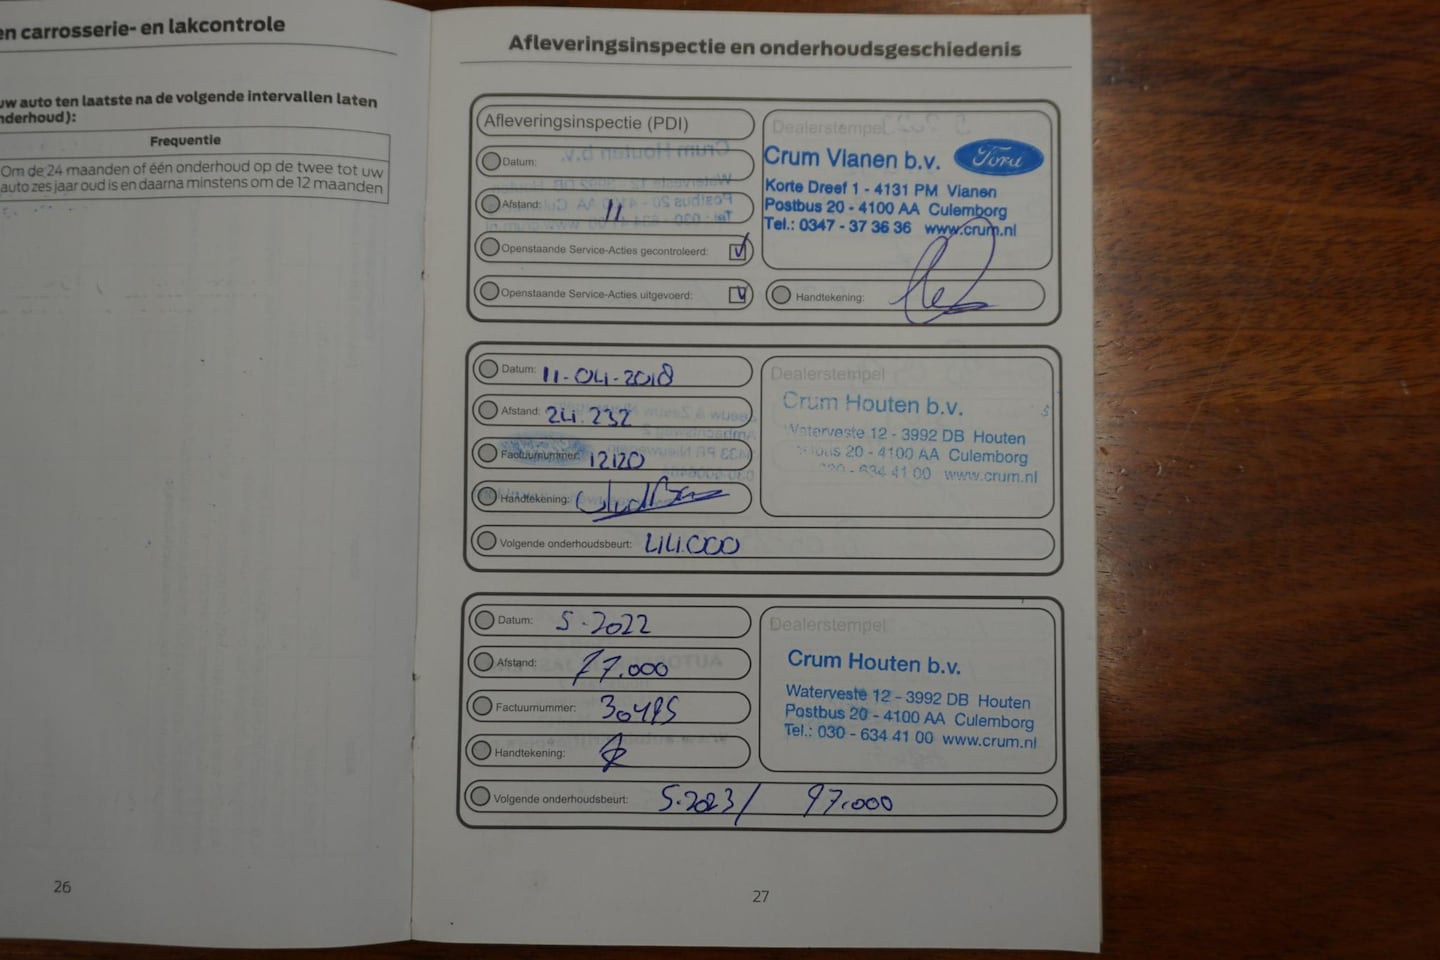 en carrosserie- en lakcontrole
uw auto ten laatste na de volgende intervallen laten
nderhoud):
Frequentie
Om de 24 maanden of één onderhoud op de twee tot uw
auto zes jaar oud is en daarna minstens om de 12 maanden
26
Afleveringsinspectie en onderhoudsgeschiedenis
Afleveringsinspectie (PDI)
Datum:
Afstand: 11
Openstaande Service-Acties gecontroleerd:
Openstaande Service-Acties uitgevoerd:
Dealerstempel
Crum Vianen b.v. Ford
Korte Dreef 1 - 4131 PM Vianen
Postbus 20 - 4100 AA Culemborg
Tel.: 0347 - 37 36 36 www.crum.nl
Handtekening:
Datum: 11-04-2018
Afstand: 24.232
Factuurnummer: 12120
Handtekening:
Volgende onderhoudsbeurt: 44.000
Dealerstempel
Crum Houten b.v.
Waterveste 12 - 3992 DB Houten
20 - 4100 AA Culemborg
030 - 634 41 00 www.crum.nl
Datum: 5-2022
Afstand: 77.000
Factuurnummer: 30495
Handtekening:
Volgende onderhoudsbeurt: 5-2023/ 97.000
Dealerstempel
Crum Houten b.v.
Waterveste 12 - 3992 DB Houten
Postbus 20 - 4100 AA Culemborg
Tel.: 030 - 634 41 00 www.crum.nl
27